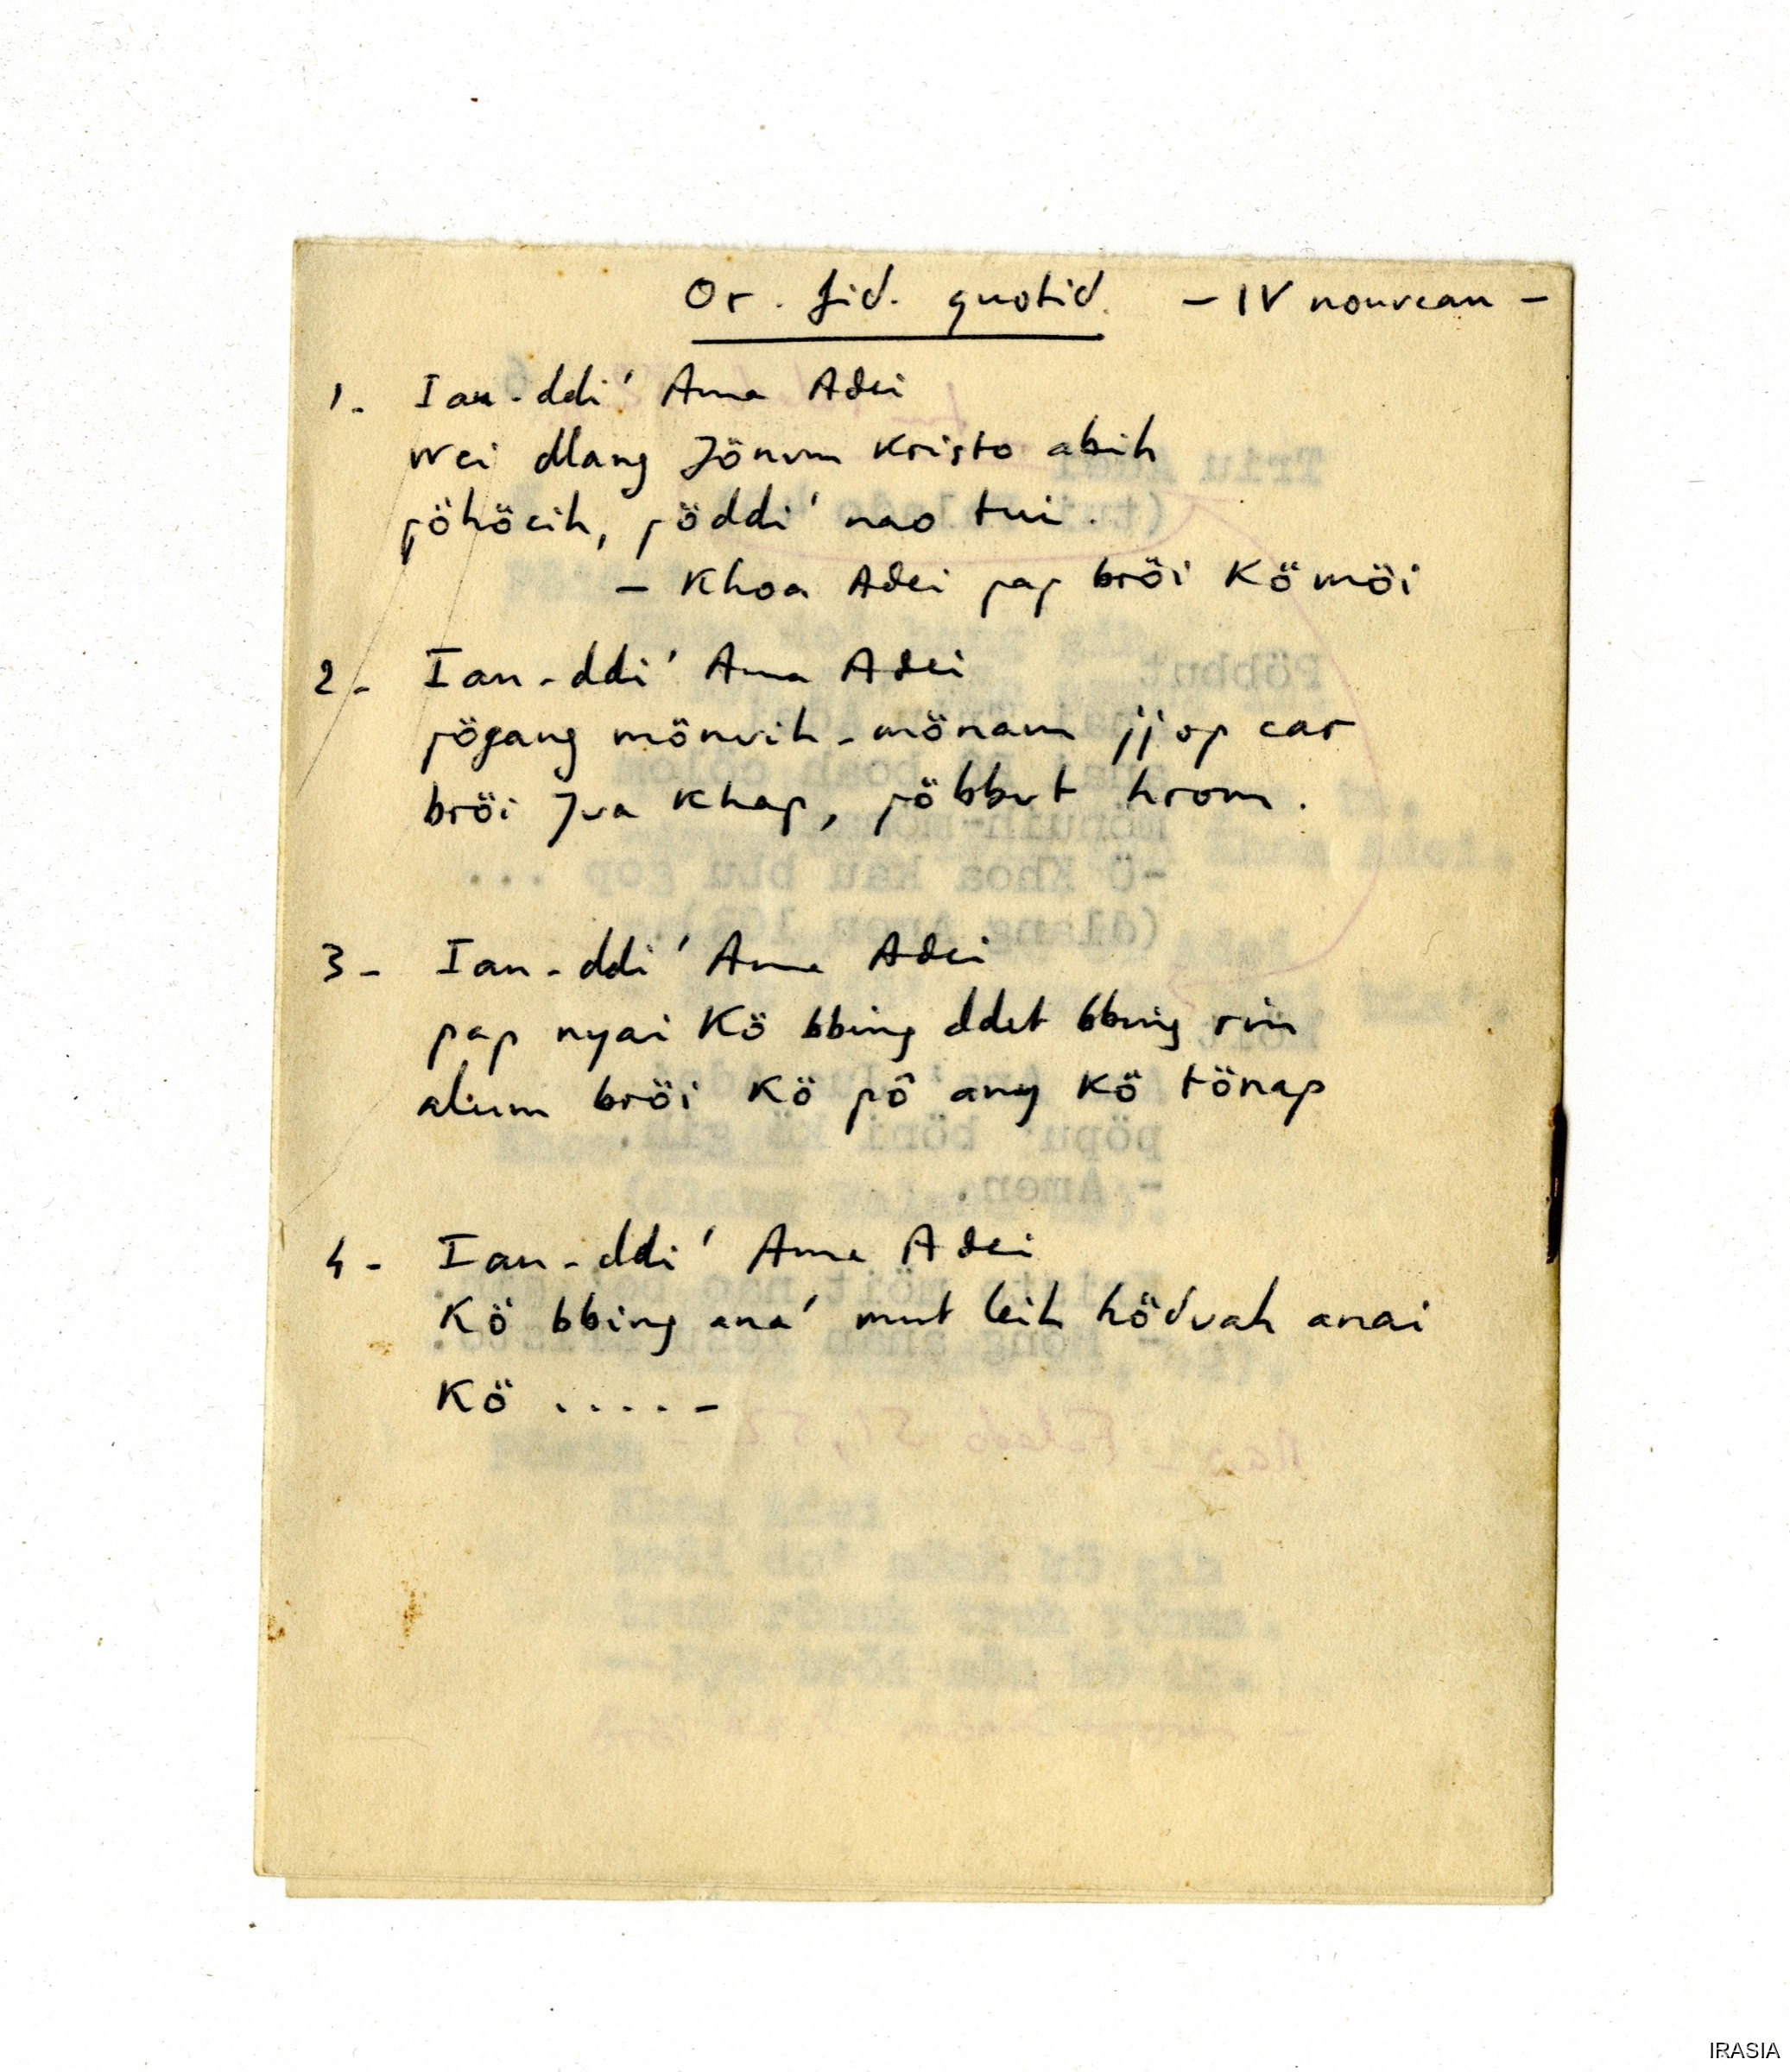 Or. fid. quotid. - IV nouveau -
1. Iau-ddi' Ama Adei
wei dlang Jönum Kristo abih
pöhöcih, pöddi' nao tui.
- Khoa Adei pap bröi Kömöi
2- Iau-ddi' Ama Adei
pögang mönuih-mönam jjop car
bröi Jua Khap, pöbbut hrom.
3- Iau-ddi' Ama Adei
pap nyai Kö bbing ddet bbing rin
alum bröi Kö pô ang Kö tönap
4- Iau-ddi' Ama Adei
Kö bbing ana' mut leih höduah anai
Kö ..... -
IRASIA